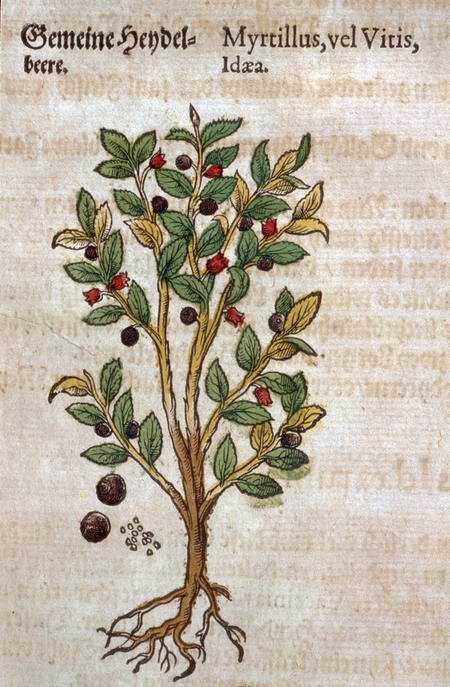 Gemeine Heydel=
beere.
Myrtillus, vel Vitis,
Idæa.